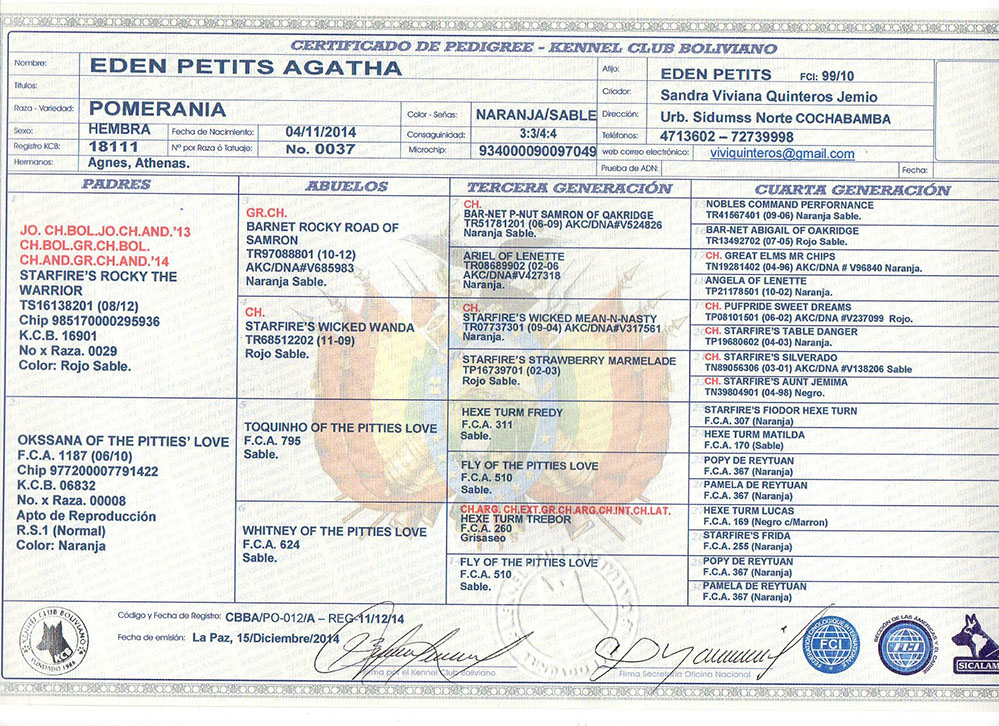 CERTIFICADO DE PEDIGREE - KENNEL CLUB BOLIVIANO
Nombre: EDEN PETITS AGATHA
Títulos:
Raza - Variedad: POMERANIA
Color - Señas: NARANJA/SABLE
Sexo: HEMBRA
Fecha de Nacimiento: 04/11/2014
Consaguinidad: 3:3/4:4
Registro KCB: 18111
Nº por Raza ó Tatuaje: No. 0037
Microchip: 934000090097049
Hermanos: Agnes, Athenas.
Afijo: EDEN PETITS FCI: 99/10
Criador: Sandra Viviana Quinteros Jemio
Dirección: Urb. Sidumss Norte COCHABAMBA
Teléfonos: 4713602 – 72739998
web correo electrónico: viviquinteros@gmail.com
Prueba de ADN:
Fecha:
PADRES
JO. CH.BOL.JO.CH.AND.'13
CH.BOL.GR.CH.BOL.
CH.AND.GR.CH.AND.'14
STARFIRE'S ROCKY THE
WARRIOR
TS16138201 (08/12)
Chip 985170000295936
K.C.B. 16901
No x Raza. 0029
Color: Rojo Sable.
OKSSANA OF THE PITTIES' LOVE
F.C.A. 1187 (06/10)
Chip 977200007791422
K.C.B. 06832
No. x Raza. 00008
Apto de Reproducción
R.S.1 (Normal)
Color: Naranja
ABUELOS
GR.CH.
BARNET ROCKY ROAD OF
SAMRON
TR97088801 (10-12)
AKC/DNA#V685983
Naranja Sable.
CH.
STARFIRE'S WICKED WANDA
TR68512202 (11-09)
Rojo Sable.
TOQUINHO OF THE PITTIES LOVE
F.C.A. 795
Sable.
WHITNEY OF THE PITTIES LOVE
F.C.A. 624
Sable.
TERCERA GENERACIÓN
CH.
BAR-NET P-NUT SAMRON OF QAKRIDGE
TR51781201 (06-09) AKC/DNA#V524826
Naranja Sable.
ARIEL OF LENETTE
TR08689902 (02-06
AKC/DNA#V427318
Naranja.
CH.
STARFIRE'S WICKED MEAN-N-NASTY
TR07737301 (09-04) AKC/DNA#V317561
Naranja.
STARFIRE'S STRAWBERRY MARMELADE
TP16739701 (02-03)
Rojo Sable.
HEXE TURM FREDY
F.C.A. 311
Sable.
FLY OF THE PITTIES LOVE
F.C.A. 510
Sable.
CH.ARG. CH.EXT.GR.CH.ARG,CH.INT,CH.LAT.
HEXE TURM TREBOR
F.C.A. 260
Grisaseo
FLY OF THE PITTIES LOVE
F.C.A. 510
Sable.
CUARTA GENERACIÓN
NOBLES COMMAND PERFORNANCE
TR41567401 (09-06) Naranja Sable.
BAR-NET ABIGAIL OF OAKRIDGE
TR13492702 (07-05) Rojo Sable.
CH. GREAT ELMS MR CHIPS
TN19281402 (04-96) AKC/DNA # V96840 Naranja.
ANGELA OF LENETTE
TP21178501 (10-02) Naranja.
CH. PUFPRIDE SWEET DREAMS
TP08101501 (06-02) AKC/DNA #V237099 Rojo.
CH. STARFIRE'S TABLE DANGER
TP19680602 (04-03) Naranja.
CH. STARFIRE'S SILVERADO
TN89056306 (03-01) AKC/DNA #V138206 Sable
CH. STARFIRE'S AUNT JEMIMA
TN39804901 (04-98) Negro.
STARFIRE'S FIODOR HEXE TURN
F.C.A. 307 (Naranja)
HEXE TURM MATILDA
F.C.A. 170 (Sable)
POPY DE REYTUAN
F.C.A. 367 (Naranja)
PAMELA DE REYTUAN
F.C.A. 367 (Naranja)
HEXE TURM LUCAS
F.C.A. 169 (Negro c/Marron)
STARFIRE'S FRIDA
F.C.A. 255 (Naranja)
POPY DE REYTUAN
F.C.A. 367 (Naranja)
PAMELA DE REYTUAN
F.C.A. 367 (Naranja)
KENNEL CLUB BOLIVIANO
FUNDADO 1986
Código y Fecha de Registro: CBBA/PO-012/A – REG-11/12/14
Fecha de emisión: La Paz, 15/Diciembre/2014
Firma por el Kennel Club Boliviano.
Firma Secretaria Oficina Nacional
FEDERATION CYNOLOGIQUE INTERNATIONALE
FCI
SECCIÓN DE LAS AMÉRICAS Y EL CARIBE
FCI
SICALAM